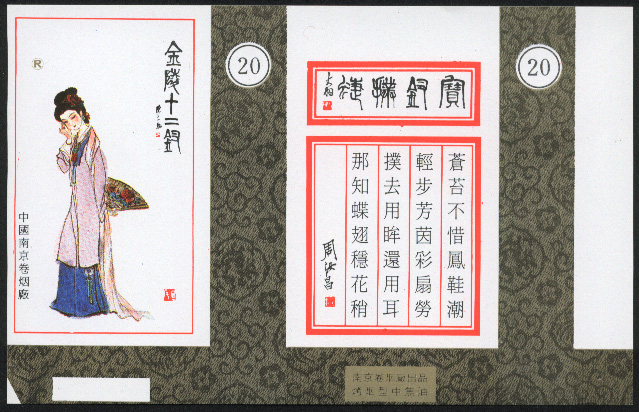 金陵十二釵
R
中國南京卷烟廠
20
寶釵撲蜨
蒼苔不惜鳳鞋潮
輕步芳茵彩扇勞
撲去用眸還用耳
那知蝶翅穩花稍
周汝昌
20
南京卷烟廠出品
烤烟型中焦油